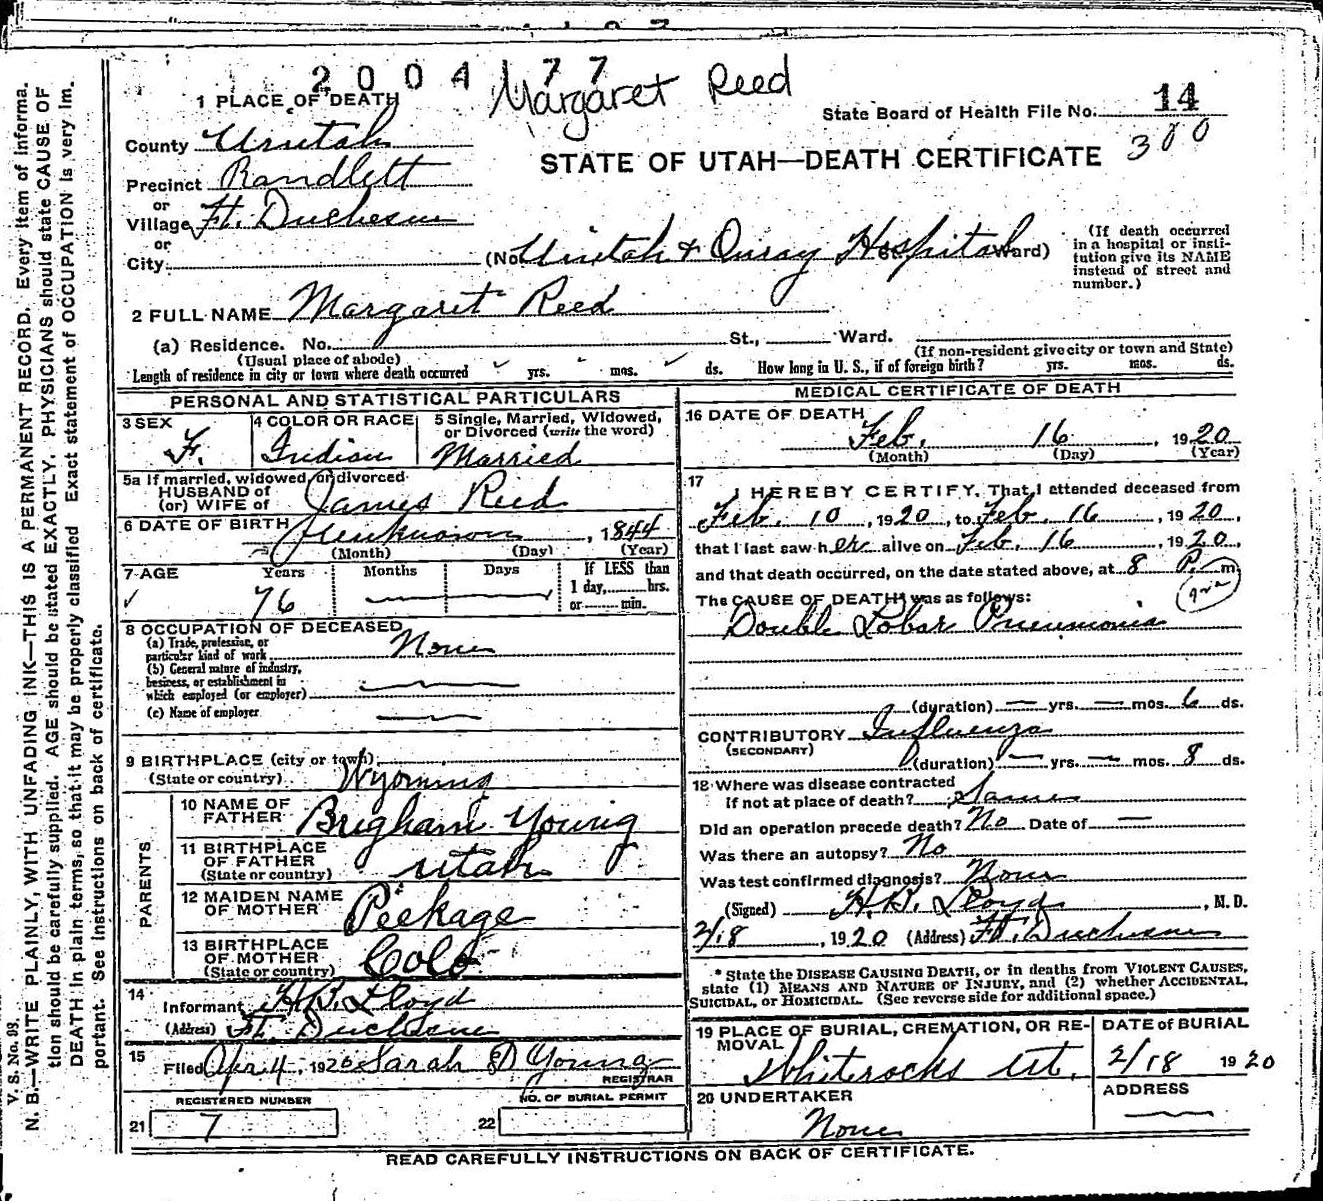 2 0 0 4 4 7 7
Margaret Reed
1 PLACE OF DEATH
State Board of Health File No. 14
380
County Uintah
STATE OF UTAH—DEATH CERTIFICATE
Precinct Randlett
or
Village Ft. Duchesne
or
City
(No. Uintah & Ouray Hospital Ward)
(If death occurred
in a hospital or insti-
tution give its NAME
instead of street and
number.)
2 FULL NAME Margaret Reed
(a) Residence. No. St., Ward.
(Usual place of abode)
(If non-resident give city or town and State)
Length of residence in city or town where death occurred yrs. mos. ds. How long in U. S., if of foreign birth? yrs. mos. ds.
PERSONAL AND STATISTICAL PARTICULARS
3 SEX
F.
4 COLOR OR RACE
Indian
5 Single, Married, Widowed,
or Divorced (write the word)
Married
5a If married, widowed or divorced
HUSBAND of
(or) WIFE of James Reed
6 DATE OF BIRTH Unknown, 1844
(Month) (Day) (Year)
7 AGE Years Months Days If LESS than
1 day, hrs.
or min.
76
8 OCCUPATION OF DECEASED
(a) Trade, profession, or
particular kind of work None
(b) General nature of industry,
business, or establishment in
which employed (or employer)
(c) Name of employer
9 BIRTHPLACE (city or town)
(State or country) Wyoming
PARENTS
10 NAME OF
FATHER Brigham Young
11 BIRTHPLACE
OF FATHER
(State or country) Utah
12 MAIDEN NAME
OF MOTHER Peekage
13 BIRTHPLACE
OF MOTHER
(State or country) Colo
14
Informant H.B. Lloyd
(Address) Ft. Duchesne
15
Filed Apr. 4, 1920 Sarah D Young
REGISTRAR
REGISTERED NUMBER
21 7
NO. OF BURIAL PERMIT
22
MEDICAL CERTIFICATE OF DEATH
16 DATE OF DEATH
Feb. 16, 1920
(Month) (Day) (Year)
17
I HEREBY CERTIFY, That I attended deceased from
Feb. 10, 1920, to Feb. 16, 1920,
that I last saw her alive on Feb. 16, 1920,
and that death occurred, on the date stated above, at 8 P. m
The CAUSE OF DEATH* was as follows:
Double Lobar Pneumonia
(duration) — yrs. — mos. 6 ds.
CONTRIBUTORY Influenza
(SECONDARY)
(duration) — yrs. — mos. 8 ds.
18 Where was disease contracted
if not at place of death? Same
Did an operation precede death? No Date of —
Was there an autopsy? No
Was test confirmed diagnosis? None
(Signed) H.B. Lloyd, M. D.
2/18, 1920 (Address) Ft. Duchesne
* State the DISEASE CAUSING DEATH, or in deaths from VIOLENT CAUSES,
state (1) MEANS AND NATURE OF INJURY, and (2) whether ACCIDENTAL,
SUICIDAL, or HOMICIDAL. (See reverse side for additional space.)
19 PLACE OF BURIAL, CREMATION, OR RE-
MOVAL
Whiterocks Ut.
DATE OF BURIAL
2/18 1920
20 UNDERTAKER
None
ADDRESS
READ CAREFULLY INSTRUCTIONS ON BACK OF CERTIFICATE.
V. S. No. 98
N. B.—WRITE PLAINLY, WITH UNFADING INK—THIS IS A PERMANENT RECORD. Every item of informa-
tion should be carefully supplied. AGE should be stated EXACTLY. PHYSICIANS should state CAUSE OF
DEATH in plain terms, so that it may be properly classified. Exact statement of OCCUPATION is very im-
portant. See instructions on back of certificate.